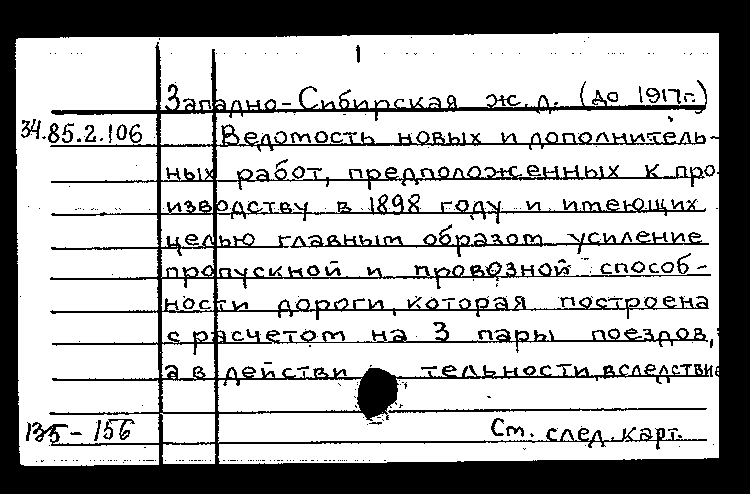 Западно-Сибирская ж.д. (до 1917г.)
34.85.2.106 Ведомость новых и дополнитель-
ных работ, предположенных к про-
изводству в 1898 году и имеющих
целью главным образом усиление
пропускной и провозной способ-
ности дороги, которая построена
с расчетом на 3 пары поездов,
а в действительности, вследствие
135-156 См. след. карт.